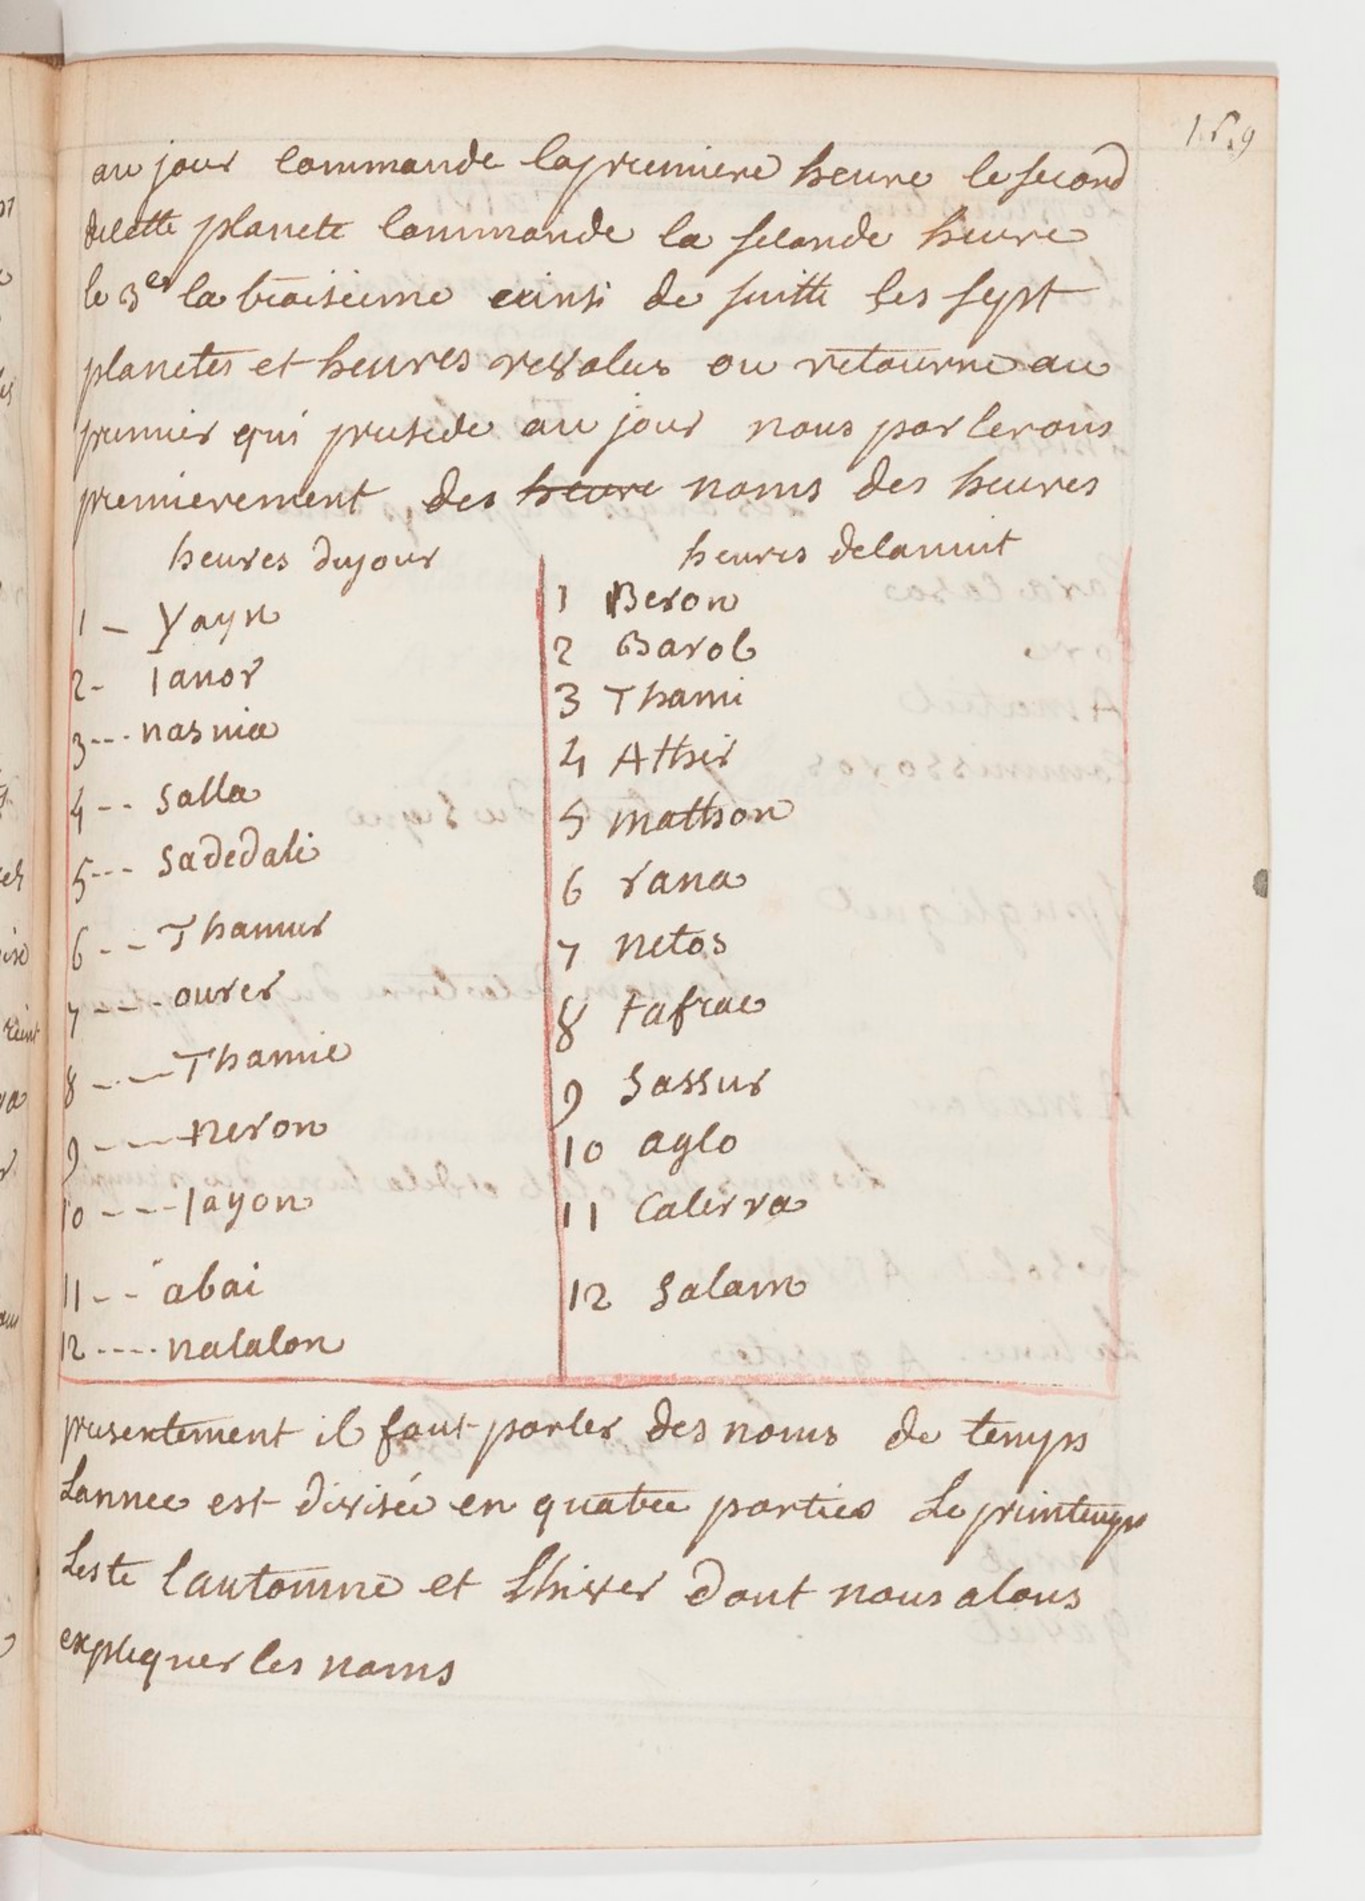 159
au jour commande la premiere heure le second
de cette planete commande la seconde heure
le 3e la troisieme ainsi de suitte les sept
planetes et heures revolus on retourne au
premier qui preside au jour nous parlerons
premierement des heure noms des heures
heures du jour
1 - yayn
2 - Ianor
3 --- nasnia
4 -- Salla
5 --- Sadedali
6 -- Thamur
7 --- ourer
8 --- Thamie
9 --- neron
10 ---- Jayon
11 -- abai
12 ---- nalalon
heures de la nuit
1 Beron
2 Barol
3 Thami
4 Athir
5 mathon
6 rana
7 netos
8 tafrac
9 Sassur
10 aglo
11 Calerva
12 Salam
presentement il faut parler des noms de temps
Lannee est divisée en quatre parties Le printemps
Leste Lautomne et Lhiver dont nous alons
expliquer les noms